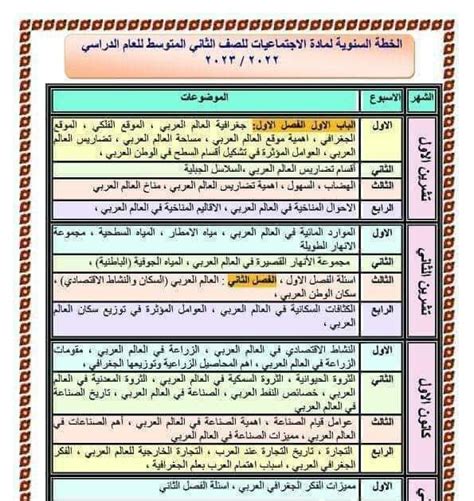 الخطة السنوية لمادة الاجتماعيات للصف الثاني المتوسط للعام الدراسي
٢٠٢٢ / ٢٠٢٣
الشهر الاسبوع الموضوعات
تشرين الاول
الاول
الباب الاول الفصل الاول: جغرافية العالم العربي ، الموقع الفلكي ، الموقع
الجغرافي ، اهمية موقع العالم العربي ، مساحة العالم العربي ، تضاريس العالم
العربي ، العوامل المؤثرة في تشكيل أقسام السطح في الوطن العربي ،
الثاني
أقسام تضاريس العالم العربي ،السلاسل الجبلية
الثالث
الهضاب ، السهول ، اهمية تضاريس العالم العربي ، مناخ العالم العربي
الرابع
الاحوال المناخية في العالم العربي ، الاقاليم المناخية في العالم العربي ،
تشرين الثاني
الاول
الموارد المائية في العالم العربي ، مياه الامطار ، المياه السطحية ، مجموعة
الانهار الطويلة
الثاني
مجموعة الأنهار القصيرة في العالم العربي ، المياه الجوفية (الباطنية) ،
الثالث
اسئلة الفصل الاول ، الفصل الثاني : العالم العربي (السكان والنشاط الاقتصادي) ،
سكان الوطن العربي ،
الرابع
الكثافات السكانية في العالم العربي ، العوامل المؤثرة في توزيع سكان العالم
العربي ،
كانون الاول
الاول
النشاط الاقتصادي في العالم العربي ، الزراعة في العالم العربي ، مقومات
الزراعة في العالم العربي ، اهم المحاصيل الزراعية وتوزيعها الجغرافي ،
الثاني
الثروة الحيوانية ، الثروة السمكية في العالم العربي ، الثروة المعدنية في العالم
العربي ، خصائص النفط العربي ، الصناعة في العالم العربي ، تاريخ الصناعة
في العالم العربي
الثالث
عوامل قيام الصناعة ، اهمية الصناعة في العالم العربي ، أهم الصناعات في
العالم العربي ، مميزات الصناعة في العالم العربي
الرابع
التجارة ، تاريخ التجارة عند العرب ، التجارة الخارجية للعالم العربي ، الفكر
الجغرافي العربي ، اسباب اهتمام العرب بعلم الجغرافية ،
الاول
مميزات الفكر الجغرافي العربي ، اسئلة الفصل الثاني